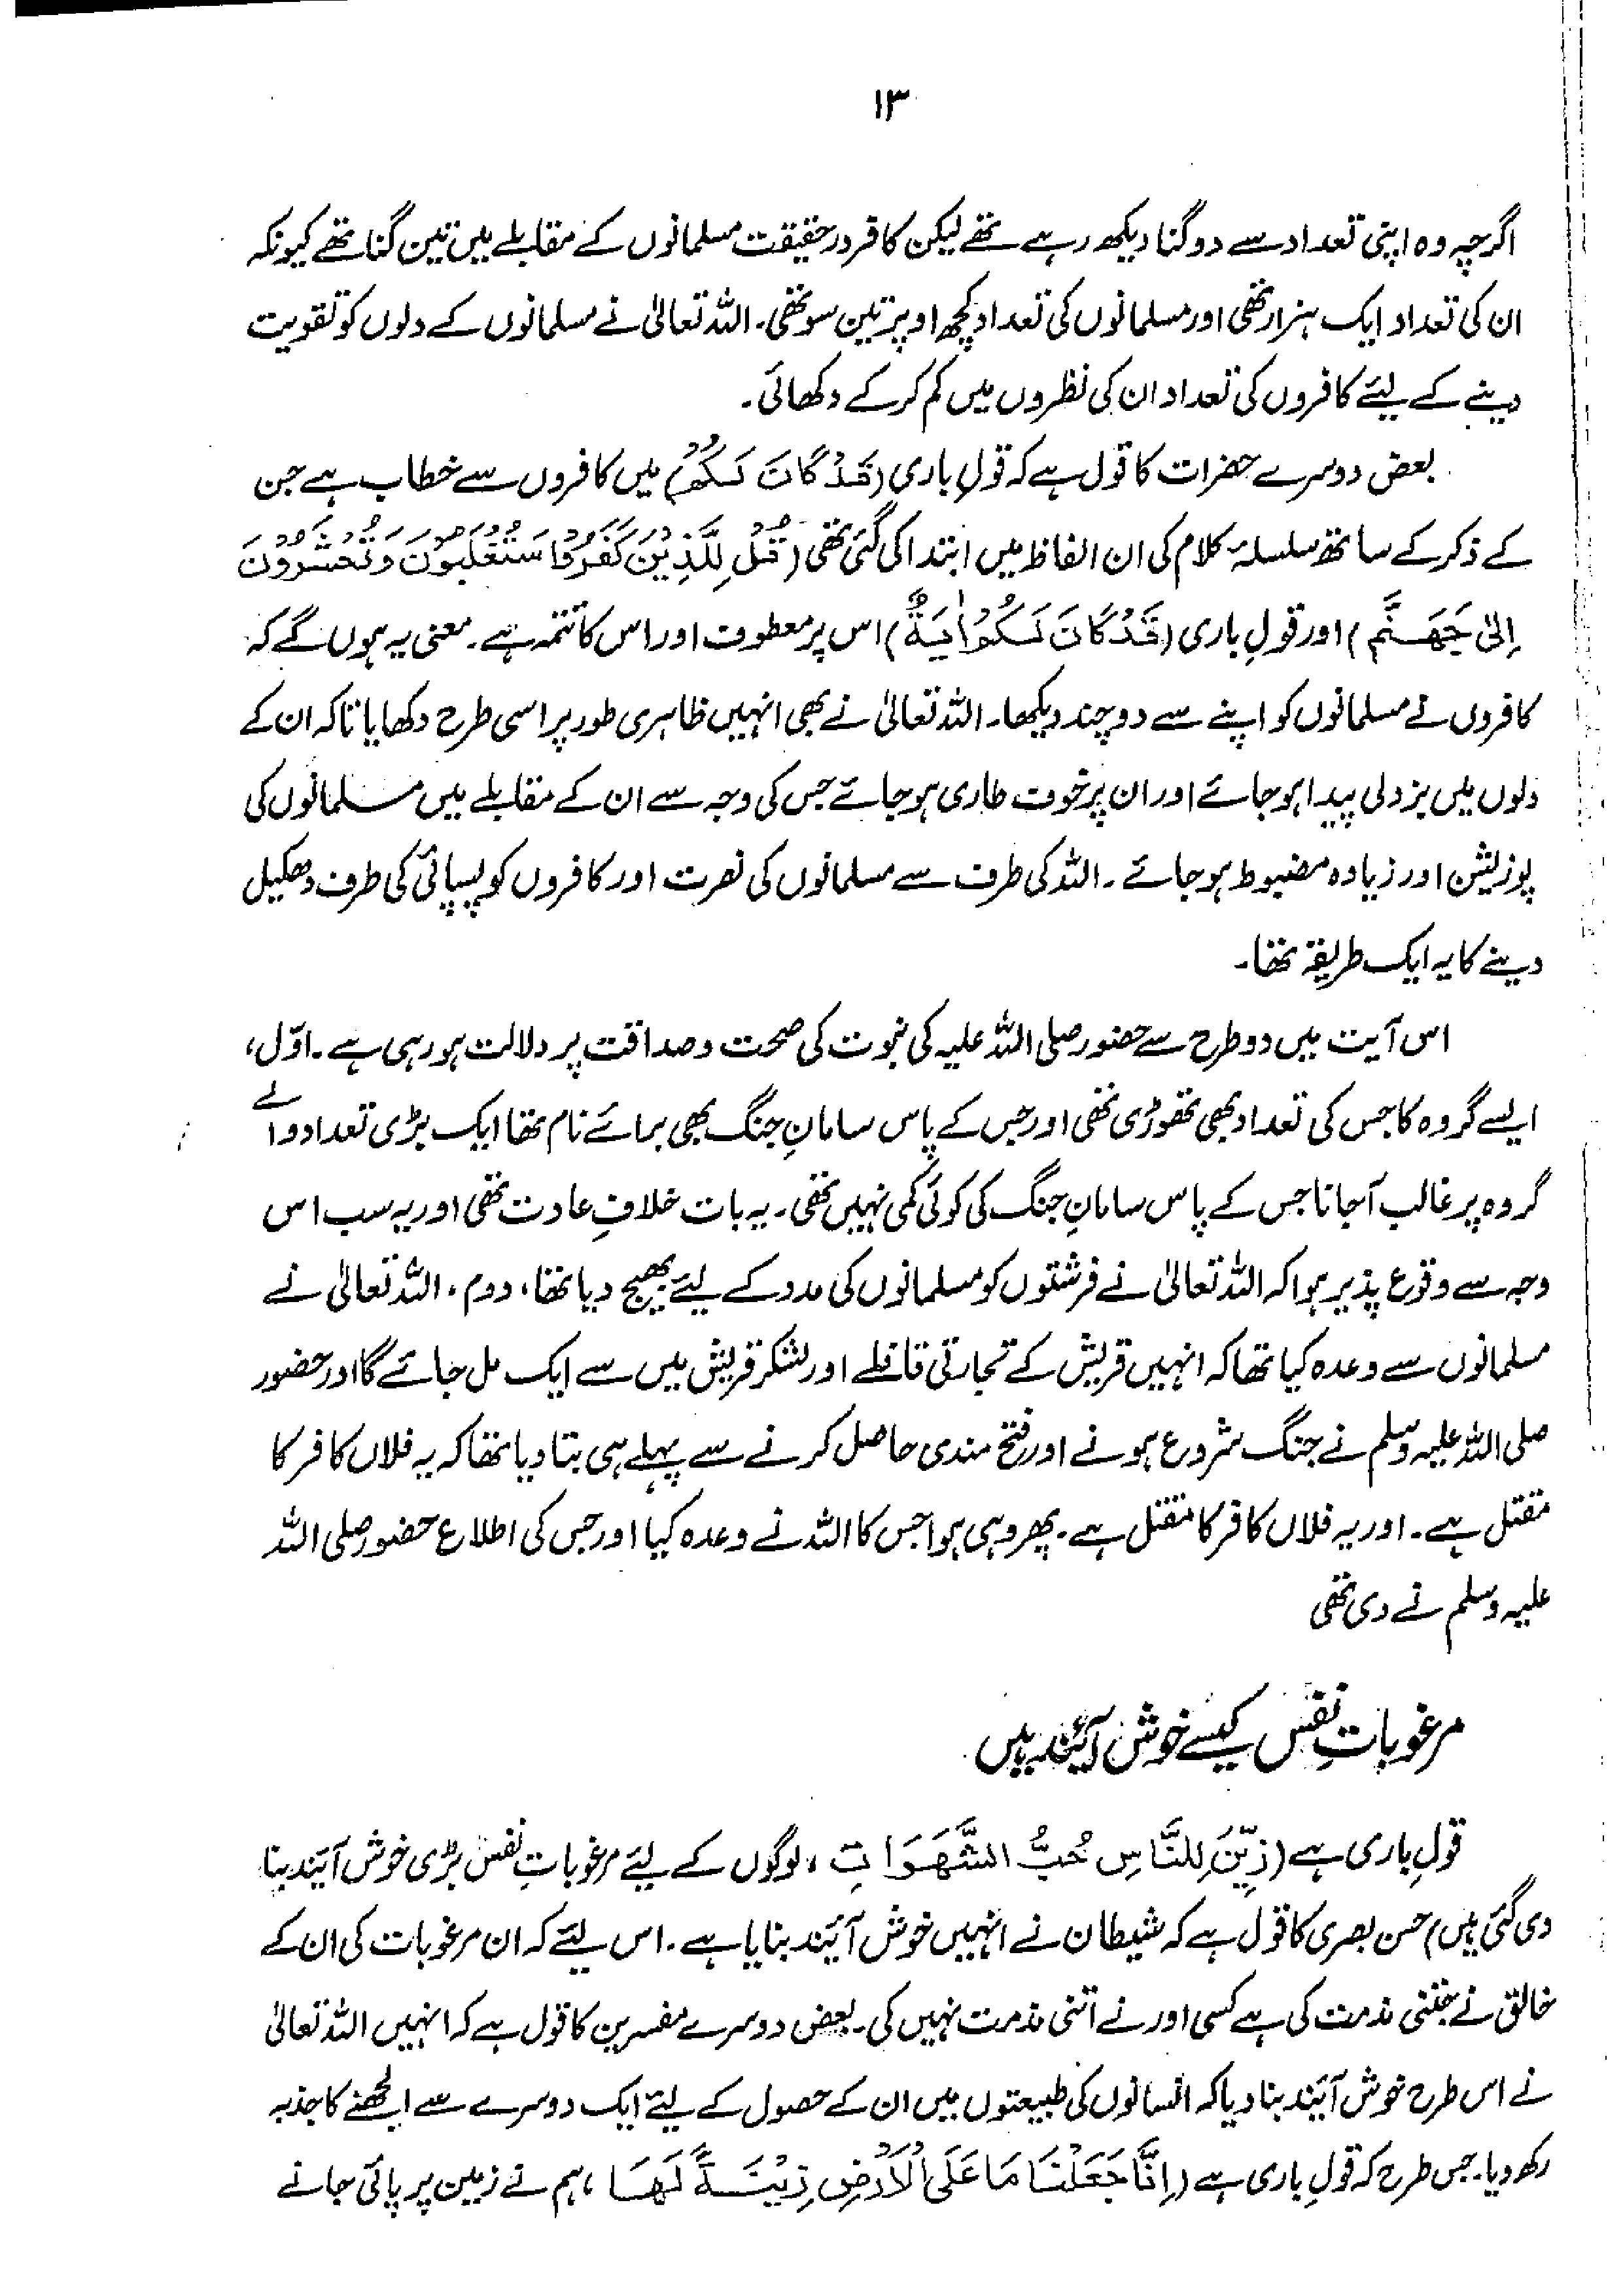 ۱۳
اگرچہ وہ اپنی تعداد سے دوگنا دیکھ رہے تھے لیکن کافر درحقیقت مسلمانوں کے مقابلے میں تین گنا تھے کیونکہ
ان کی تعداد ایک ہزار تھی اور مسلمانوں کی تعداد کچھ اوپر تین سو تھی۔ اللہ تعالیٰ نے مسلمانوں کے دلوں کو تقویت
دینے کے لیئے کافروں کی تعداد ان کی نظروں میں کم کر کے دکھائی۔
بعض دوسرے حضرات کا قول ہے کہ قولِ باری (قَدْ كَانَ لَكُمْ) میں کافروں سے خطاب ہے جن
کے ذکر کے ساتھ سلسلۂ کلام کی ان الفاظ میں ابتدا کی گئی تھی (قُلْ لِلَّذِيْنَ كَفَرُوْا سَتُغْلَبُوْنَ وَتُحْشَرُوْنَ
اِلیٰ جَهَنَّمَ) اور قولِ باری (قَدْ كَانَ لَكُمْ اٰيَةٌ) اس پر معطوف اور اس کا تتمہ ہے۔ معنی یہ ہوں گے کہ
کافروں نے مسلمانوں کو اپنے سے دو چند دیکھا۔ اللہ تعالیٰ نے بھی انہیں ظاہری طور پر اسی طرح دکھایا تاکہ ان کے
دلوں میں بزدلی پیدا ہو جائے اور ان پر خوف طاری ہو جائے جس کی وجہ سے ان کے مقابلے میں مسلمانوں کی
پوزیشن اور زیادہ مضبوط ہو جائے۔ اللہ کی طرف سے مسلمانوں کی نصرت اور کافروں کو پسپائی کی طرف دھکیل
دینے کا یہ ایک طریقہ تھا۔
اس آیت میں دو طرح سے حضور صلی اللہ علیہ کی نبوت کی صحت و صداقت پر دلالت ہو رہی ہے۔ اوّل،
ایسے گروہ کا جس کی تعداد بھی تھوڑی تھی اور جس کے پاس سامانِ جنگ بھی برائے نام تھا ایک بڑی تعداد والے
گروہ پر غالب آجانا جس کے پاس سامانِ جنگ کی کوئی کمی نہیں تھی۔ یہ بات خلافِ عادت تھی اور یہ سب اس
وجہ سے وقوع پذیر ہوا کہ اللہ تعالیٰ نے فرشتوں کو مسلمانوں کی مدد کے لیئے بھیج دیا تھا، دوم، اللہ تعالیٰ نے
مسلمانوں سے وعدہ کیا تھا کہ انہیں قریش کے تجارتی قافلے اور لشکر قریش میں سے ایک مل جائے گا اور حضور
صلی اللہ علیہ وسلم نے جنگ شروع ہونے اور فتح مندی حاصل کرنے سے پہلے ہی بتا دیا تھا کہ یہ فلاں کافر کا
مقتل ہے۔ اور یہ فلاں کافر کا مقتل ہے۔ پھر وہی ہوا جس کا اللہ نے وعدہ کیا اور جس کی اطلاع حضور صلی اللہ
علیہ وسلم نے دی تھی
مرغوباتِ نفس کیسے خوش آئند ہیں
قولِ باری ہے (زُيِّنَ لِلنَّاسِ حُبُّ الشَّهَوَاتِ، لوگوں کے لیئے مرغوباتِ نفس بڑی خوش آئند بنا
دی گئی ہیں) حسن بصری کا قول ہے کہ شیطان نے انہیں خوش آئند بنایا ہے۔ اس لیئے کہ ان مرغوبات کی ان کے
خالق نے جتنی مذمت کی ہے کسی اور نے اتنی مذمت نہیں کی۔ بعض دوسرے مفسرین کا قول ہے کہ انہیں اللہ تعالیٰ
نے اس طرح خوش آئند بنا دیا کہ انسانوں کی طبیعتوں میں ان کے حصول کے لیئے ایک دوسرے سے الجھنے کا جذبہ
رکھ دیا۔ جس طرح کہ قولِ باری ہے (اِنَّا جَعَلْنَا مَا عَلَى الْاَرْضِ زِيْنَةً لَهَا، ہم نے زمین پر پائی جانے